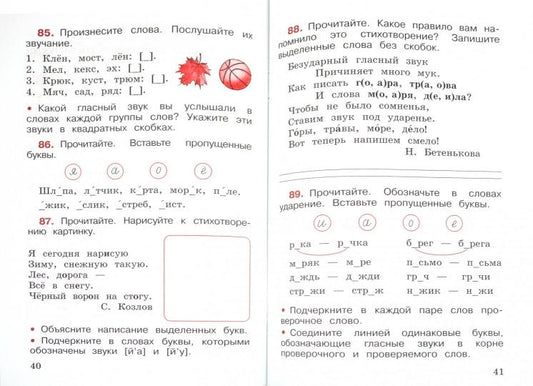 85. Произнесите слова. Послушайте их
звучание.
1. Клён, мост, лён: [_].
2. Мел, кекс, эх: [_].
3. Крюк, куст, трюм: [_].
4. Мяч, сад, ряд: [_].
• Какой гласный звук вы услышали в
словах каждой группы слов? Укажите эти
звуки в квадратных скобках.
86. Прочитайте. Вставьте пропущенные
буквы.
я а о е
Шл_па, л_тчик, к_рта, мор_к, п_ле.
_жик, _слик, _стреб, _ист.
87. Прочитайте. Нарисуйте к стихотворе-
нию картинку.
Я сегодня нарисую
Зиму, снежную такую.
Лес, дорога —
Всё в снегу.
Чёрный ворон на стогу.
С. Козлов
• Объясните написание выделенных букв.
• Подчеркните в словах буквы, которыми
обозначены звуки [й'а] и [й'у].
40
88. Прочитайте. Какое правило вам на-
помнило это стихотворение? Запишите
выделенные слова без скобок.
Безударный гласный звук
Причиняет много мук.
Как писать г(о, а)ра, тр(а, о)ва
И слова м(о, а)ря, д(е, и)ла?
Чтобы не было сомненья,
Ставим звук под ударенье.
Го́ры, тра́вы, мо́ре, де́ло!
Вот теперь напишем смело!
Н. Бетенькова
89. Прочитайте. Обозначьте в словах
ударение. Вставьте пропущенные буквы.
и а о е
р_ка — р_чка б_рег — б_рега
м_ряк — м_ре п_сьмо — п_сьма
д_ждь — д_жди гр_ч — гр_чи
стр_жи — стр_ж н_жик — н_жи
• Подчеркните в каждой паре слов про-
верочное слово.
• Соедините линией одинаковые буквы,
обозначающие гласные звуки в корне
проверочного и проверяемого слов.
41